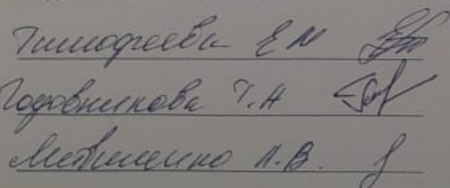 Тимофеева Е М
Годовникова Т.Н
Матвиенко Н.В.